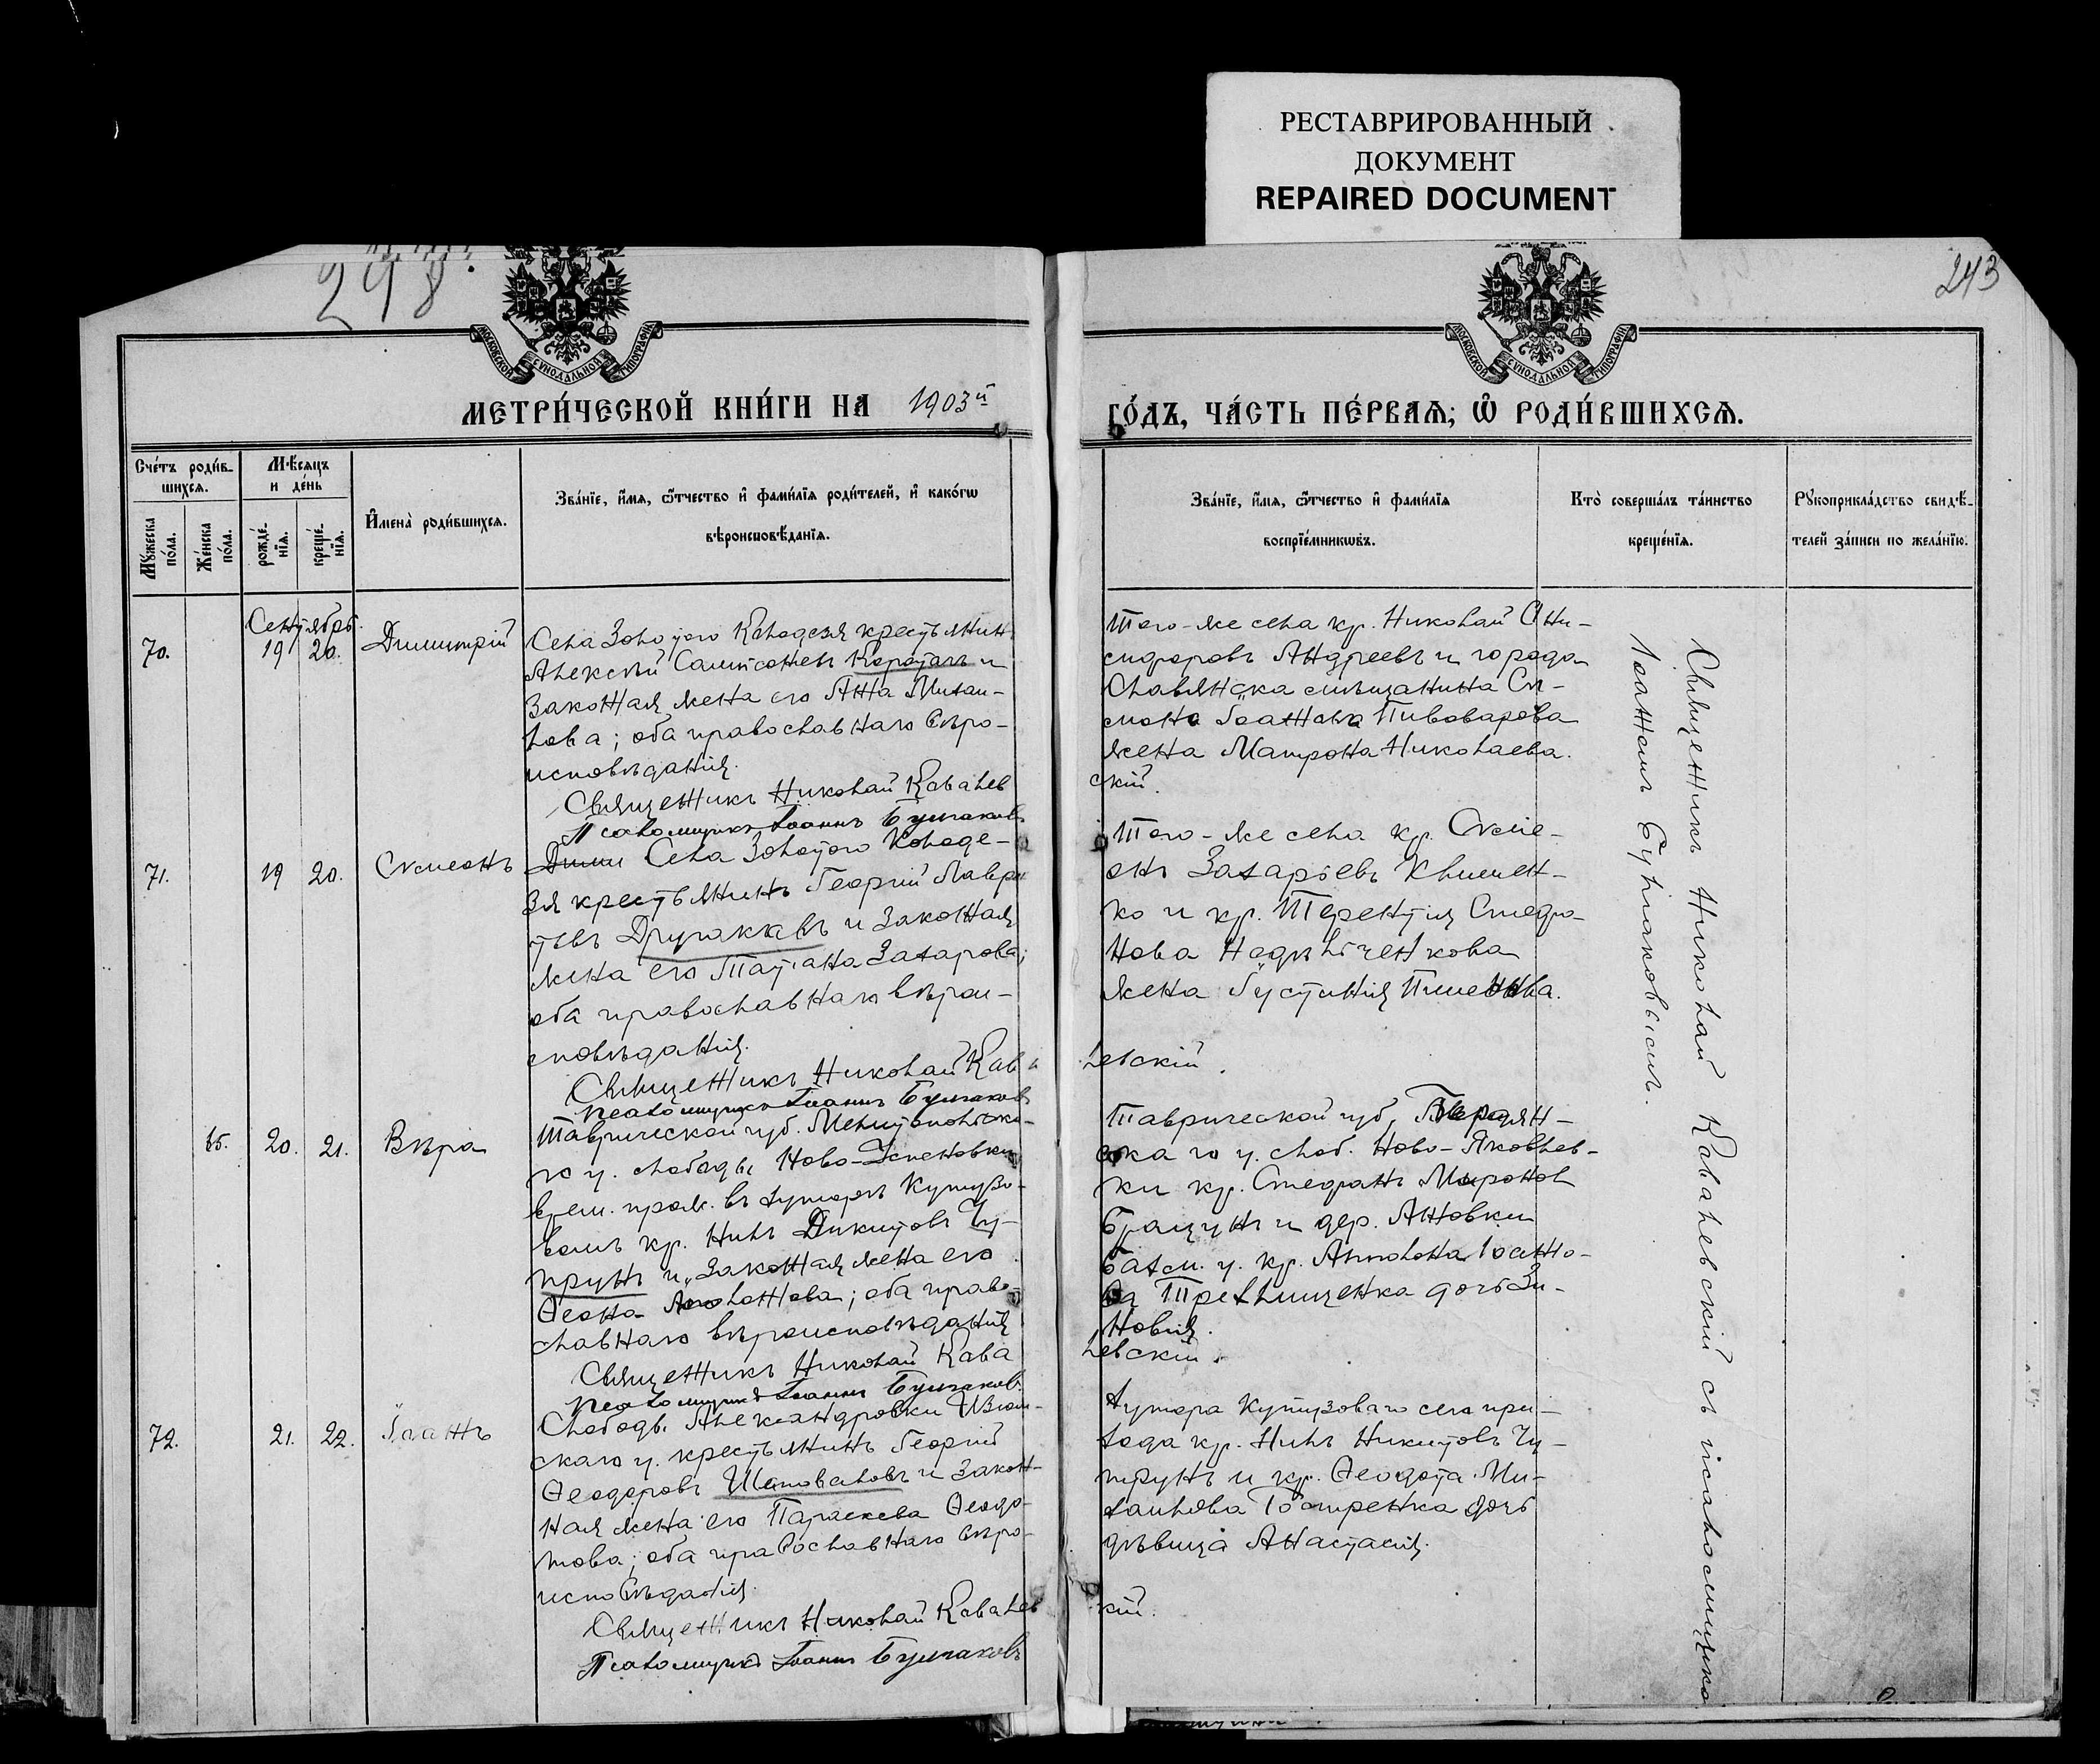 РЕСТАВРИРОВАННЫЙ
ДОКУМЕНТ
REPAIRED DOCUMENT
298.
243
МОСКОВСКОЙ СѴНОДАЛЬНОЙ ТИПОГРАФІИ
МОСКОВСКОЙ СѴНОДАЛЬНОЙ ТИПОГРАФІИ
МЕТРИ́ЧЕСКОЙ КНИ́ГИ НА 1903й
ГО́ДЪ, ЧА́СТЬ ПЕ́РВАѦ; Ѡ҆ РОДИ́ВШИХСѦ.
Сче́тъ роди́в-
шихсѧ.
Мꙋ́жеска
по́ла.
Же́нска
по́ла.
Мѣ́сѧцъ
и де́нь
рожде́-
нїѧ.
креще́-
нїѧ.
И҆мена̀ роди́вшихсѧ.
Зва́нїе, и҆́мѧ, ѻ҆́тчество и҆ фами́лїѧ роди́телей, и҆ како́гѡ
вѣроисповѣ́данїѧ.
Зва́нїе, и҆́мѧ, ѻ҆́тчество и҆ фами́лїѧ
воспрїе́мникѡвъ.
Кто̀ соверша́лъ та́инство
креще́нїѧ.
Рꙋкоприкла́дство свидѣ́-
телей за́писи по жела́нїю.
Сентябрь.
70. 19 20. Димитрій
Села Золотого Колодезя крестьянинъ
Алексѣй Сампсоневъ Коротачъ и
законная жена его Анна Михаи-
лова; оба православнаго вѣро-
исповѣданія.
Священникъ Николай Ковалев
Псаломщикъ Іоаннъ Булгаковъ
Того-же села кр. Николай Они-
сифоровъ Андреевъ и города
Славянска мѣщанина Си-
меона Іоаннова Пивоварова
жена Матрона Николаева.
скій.
71. 19 20. Симеонъ
Дими Села Золотого Колоде-
зя крестьянинъ Георгій Лаврен
тьевъ и законная
жена его Татіана Захарова;
оба православнаго вѣрои-
сповѣданія.
Священникъ Николай Кова
Псаломщикъ Іоаннъ Булгаковъ
Того-же села кр. Симе-
онъ Захаріевъ Клименн-
ко и кр. Терентія Стефа-
нова
жена Іустинія Пименова.
левскій.
15. 20. 21. Вѣра
Таврической губ. Мелитопольска-
го у. слободы Ново-Успеновки,
врем. прож. въ хуторѣ Кутузо-
вомъ кр. Нилъ Никитовъ Чу-
прунъ и законная жена его
Ѳеона; оба право-
славнаго вѣроисповѣданія
Священникъ Николай Кова
Псаломщикъ Іоаннъ Булгаковъ
Таврической губ. Бердян-
скаго у. слоб. Ново-Яковлев-
ки кр. Стефанъ Миронов
и дер. Анновки
Бахм. у. кр. Аполлона Іоанно-
ва дочь Зи-
новія.
левскій.
72. 21. 22. Іоаннъ
Слободы Александровки Изюм-
скаго у. крестьянинъ Георгій
Ѳеодоровъ Шаповаловъ и закон-
ная жена его Параскева Ѳеодо-
това; оба православнаго вѣро-
исповѣданія.
Священникъ Николай Ковалев
Псаломщикъ Іоаннъ Булгаковъ
Хутора Кутузоваго сего при-
хода кр. Нилъ Никитовъ Чу-
прунъ и кр. Ѳеодота Ми-
хаилова дочь
дѣвица Анастасія.
кій.
Священникъ Николай Ковалевскій съ псаломщико
Іоанномъ Булгаковымъ.